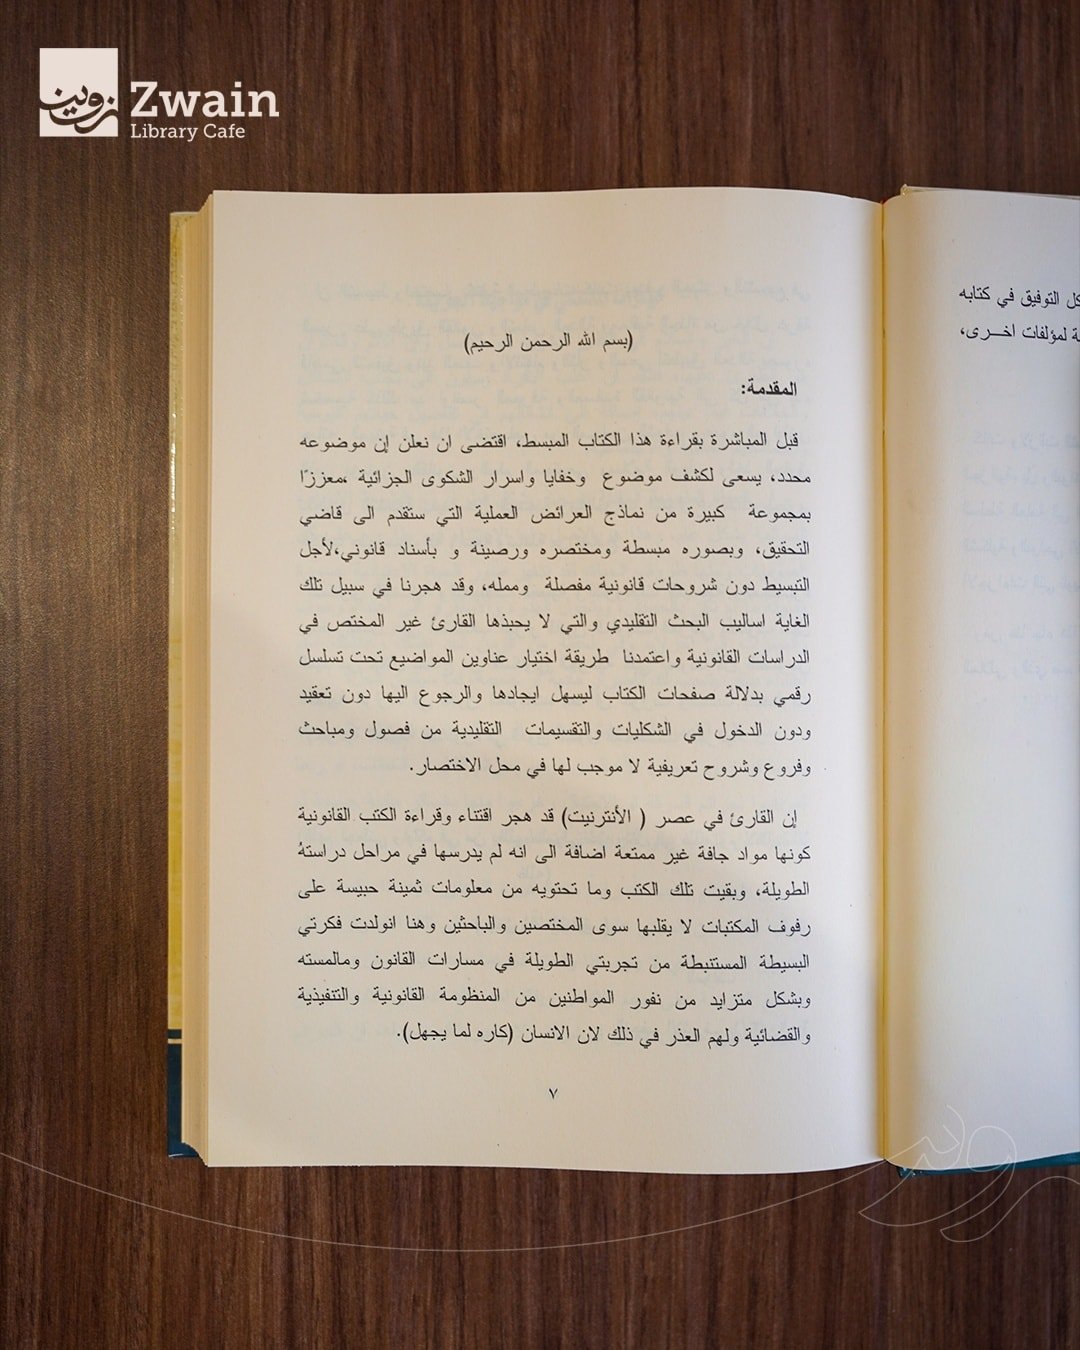 زوين
Zwain
Library Cafe
كل التوفيق في كتابه
لمؤلفات اخـــرى،
(بسم الله الرحمن الرحيم)
المقدمة:
قبل المباشرة بقراءة هذا الكتاب المبسط، اقتضى ان نعلن إن موضوعه
محدد، يسعى لكشف موضوع وخفايا واسرار الشكوى الجزائية ،معززًا
بمجموعة كبيرة من نماذج العرائض العملية التي ستقدم الى قاضي
التحقيق، وبصوره مبسطة ومختصره ورصينة و بأسناد قانوني،لأجل
التبسيط دون شروحات قانونية مفصلة وممله، وقد هجرنا في سبيل تلك
الغاية اساليب البحث التقليدي والتي لا يحبذها القارئ غير المختص في
الدراسات القانونية واعتمدنا طريقة اختيار عناوين المواضيع تحت تسلسل
رقمي بدلالة صفحات الكتاب ليسهل ايجادها والرجوع اليها دون تعقيد
ودون الدخول في الشكليات والتقسيمات التقليدية من فصول ومباحث
وفروع وشروح تعريفية لا موجب لها في محل الاختصار.
إن القارئ في عصر ( الأنترنيت) قد هجر اقتناء وقراءة الكتب القانونية
كونها مواد جافة غير ممتعة اضافة الى انه لم يدرسها في مراحل دراستهُ
الطويلة، وبقيت تلك الكتب وما تحتويه من معلومات ثمينة حبيسة على
رفوف المكتبات لا يقلبها سوى المختصين والباحثين وهنا انولدت فكرتي
البسيطة المستنبطة من تجربتي الطويلة في مسارات القانون ومالمسته
وبشكل متزايد من نفور المواطنين من المنظومة القانونية والتنفيذية
والقضائية ولهم العذر في ذلك لان الانسان (كاره لما يجهل).
٧